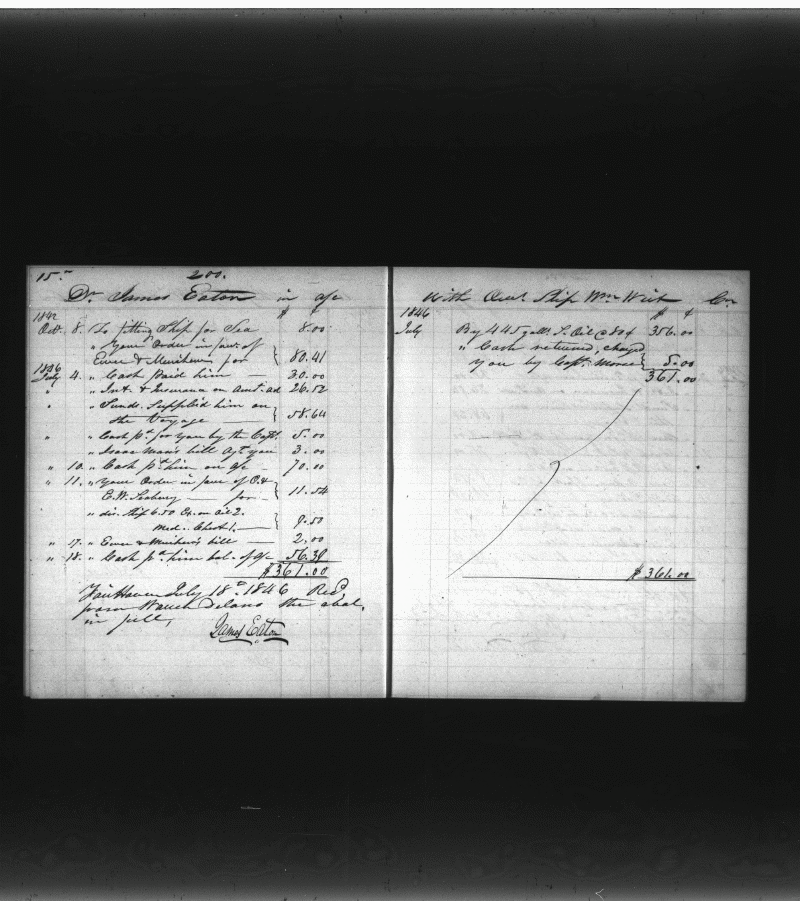 15.
200.
Dr James Eaton in a/c
$ ¢
1842
Octr 8. To fitting Ship for Sea 8.00
" Your Order in favr of
Ewer & for } 80.41
1846
July 4. " Cash Paid him — 30.00
" " Int. & Insurance on Amt. ad 26.52
" " Sunds. Supplied him on
the Voyage — } 58.64
" " Cash pd for you by the Capt. 5.00
" " Isaac bill agt you 3.00
" 10. " Cash pd him on a/c — 70.00
" 11. " Your Order in favr of O. &
E. W. Seabury — for — } 11.54
" dis. Ship 6.50 Ex. on Oil 2.
Med. Chest 1. — } 9.50
" 17. " Ewer & bill — 2.00
" 18. " Cash pd him bal. of a/c 56.39
$361.00
Fairhaven July 18th 1846 Recd
from Delano the abov.
in full,
James Eaton
With Ship Wm Wirt Cr
1846
$ ¢
July By 445 galls. S. Oil @ 80¢ 356.00
" Cash returned, charged
you by Capt. Morse } 5.00
361.00
$ 366.00